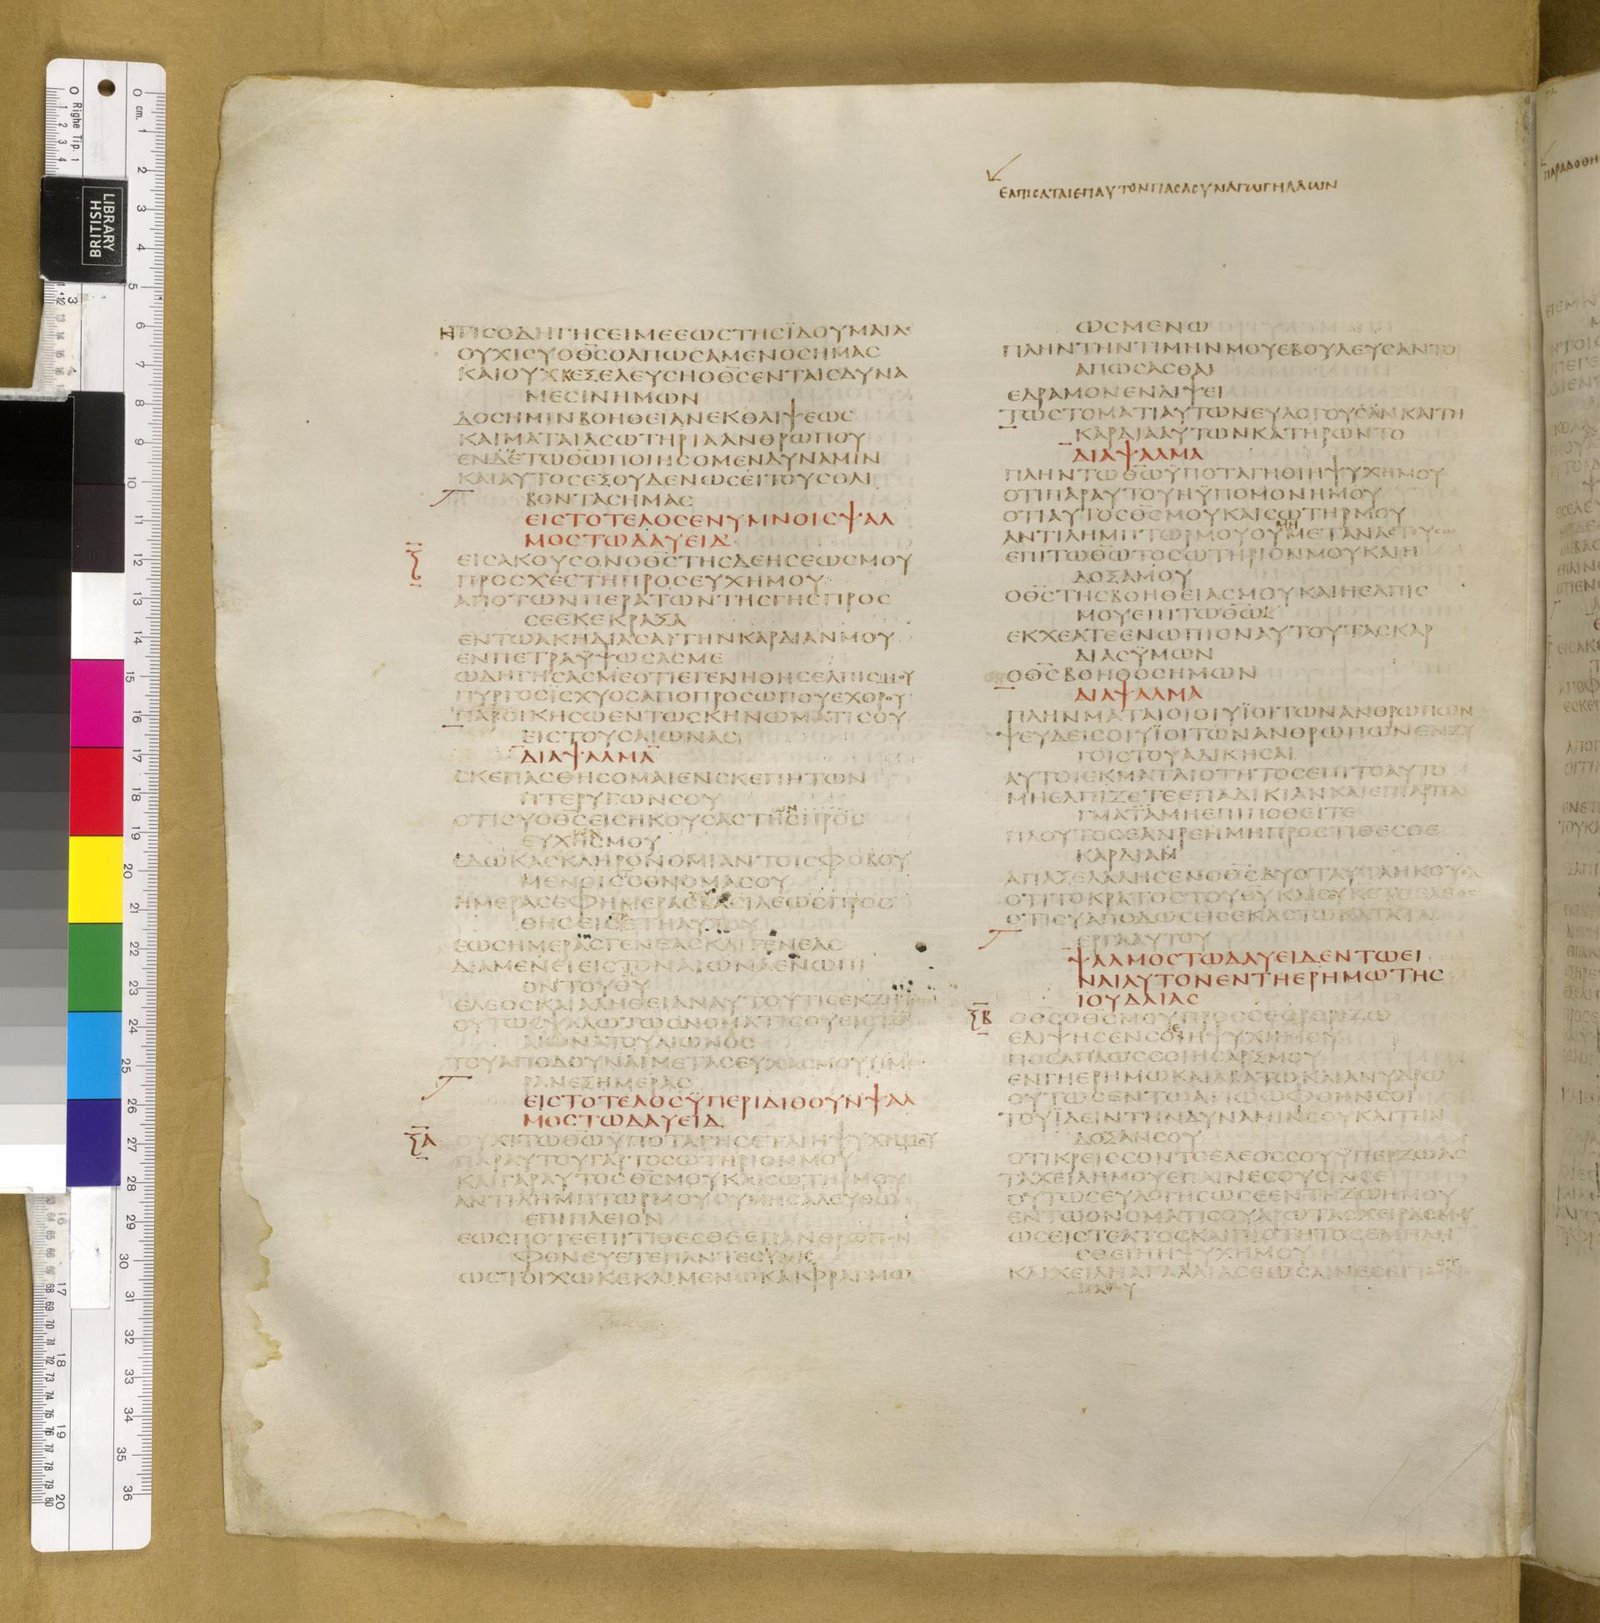 ΕΛΠΙΣΑΤΑΙΕΠΑΥΤΟΝΠΑΣΑΣΥΝΑΓΩΓΗΛΑΩΝ
ΗΤΙΣΟΔΗΓΗΣΕΙΜΕΕΩΣΤΗΣΪΔΟΥΜΑΙΑ
ΟΥΧΙΣΥΟΘΣΟΑΠΩΣΑΜΕΝΟΣΗΜΑΣ
ΚΑΙΟΥΚΕΞΕΛΕΥΣΗΟΘΣΕΝΤΑΙΣΔΥΝΑ
ΜΕΣΙΝΗΜΩΝ
ΔΟΣΗΜΙΝΒΟΗΘΕΙΑΝΕΚΘΛΙΨΕΩΣ
ΚΑΙΜΑΤΑΙΑΣΩΤΗΡΙΑΑΝΘΡΩΠΟΥ
ΕΝΔΕΤΩΘΩΠΟΙΗΣΟΜΕΝΔΥΝΑΜΙΝ
ΚΑΙΑΥΤΟΣΕΞΟΥΔΕΝΩΣΕΙΤΟΥΣΘΛΙ
ΒΟΝΤΑΣΗΜΑΣ
ΕΙΣΤΟΤΕΛΟΣΕΝΥΜΝΟΙΣΨΑΛ
ΜΟΣΤΩΔΑΥΕΙΔ
Ξ
ΕΙΣΑΚΟΥΣΟΝΟΘΣΤΗΣΔΕΗΣΕΩΣΜΟΥ
ΠΡΟΣΧΕΣΤΗΠΡΟΣΕΥΧΗΜΟΥ
ΑΠΟΤΩΝΠΕΡΑΤΩΝΤΗΣΓΗΣΠΡΟΣ
ΣΕΕΚΕΚΡΑΞΑ
ΕΝΤΩΑΚΗΔΙΑΣΑΙΤΗΝΚΑΡΔΙΑΝΜΟΥ
ΕΝΠΕΤΡΑΫΨΩΣΑΣΜΕ
ΩΔΗΓΗΣΑΣΜΕΟΤΙΕΓΕΝΗΘΗΣΕΛΠΙΣΜΟΥ
ΠΥΡΓΟΣΙΣΧΥΟΣΑΠΟΠΡΟΣΩΠΟΥΕΧΘΡΟΥ
ΠΑΡΟΙΚΗΣΩΕΝΤΩΣΚΗΝΩΜΑΤΙΣΟΥ
ΕΙΣΤΟΥΣΑΙΩΝΑΣ
ΔΙΑΨΑΛΜΑ
ΣΚΕΠΑΣΘΗΣΟΜΑΙΕΝΣΚΕΠΗΤΩΝ
ΠΤΕΡΥΓΩΝΣΟΥ
ΟΤΙΣΥΟΘΣΕΙΣΗΚΟΥΣΑΣΤΗΣΠΡΟΣ
ΕΥΧΗΣΜΟΥ
ΕΔΩΚΑΣΚΛΗΡΟΝΟΜΙΑΝΤΟΙΣΦΟΒΟΥ
ΜΕΝΟΙΣΤΟΟΝΟΜΑΣΟΥ
ΗΜΕΡΑΣΕΦΗΜΕΡΑΣΒΑΣΙΛΕΩΣΠΡΟΣ
ΘΗΣΕΙΣΕΤΗΑΥΤΟΥ
ΕΩΣΗΜΕΡΑΣΓΕΝΕΑΣΚΑΙΓΕΝΕΑΣ
ΔΙΑΜΕΝΕΙΕΙΣΤΟΝΑΙΩΝΑΕΝΩΠΙ
ΟΝΤΟΥΘΥ
ΕΛΕΟΣΚΑΙΑΛΗΘΕΙΑΝΑΥΤΟΥΤΙΣΕΚΖΗ
ΟΥΤΩΣΨΑΛΩΤΩΟΝΟΜΑΤΙΣΟΥΕΙΣΤΟΝ
ΑΙΩΝΑΤΟΥΑΙΩΝΟΣ
ΤΟΥΑΠΟΔΟΥΝΑΙΜΕΤΑΣΕΥΧΑΣΜΟΥΗΜΕ
ΡΑΝΕΞΗΜΕΡΑΣ
ΕΙΣΤΟΤΕΛΟΣΫΠΕΡΙΔΙΘΟΥΝΨΑΛ
ΜΟΣΤΩΔΑΥΕΙΔ
ΞΑ
ΟΥΧΙΤΩΘΩΫΠΟΤΑΓΗΣΕΤΑΙΗΨΥΧΗΜΟΥ
ΠΑΡΑΥΤΟΥΓΑΡΤΟΣΩΤΗΡΙΟΝΜΟΥ
ΚΑΙΓΑΡΑΥΤΟΣΘΣΜΟΥΚΑΙΣΩΤΗΡΜΟΥ
ΑΝΤΙΛΗΜΠΤΩΡΜΟΥΟΥΜΗΣΑΛΕΥΘΩ
ΕΠΙΠΛΕΙΟΝ
ΕΩΣΠΟΤΕΕΠΙΤΙΘΕΣΘΕΕΠΑΝΘΡΩΠΟΝ
ΦΟΝΕΥΕΤΕΠΑΝΤΕΣΥΜΙΣ
ΩΣΤΟΙΧΩΚΕΚΛΙΜΕΝΩΚΑΙΦΡΑΓΜΩ
ΩΣΜΕΝΩ
ΠΛΗΝΤΗΝΤΙΜΗΝΜΟΥΕΒΟΥΛΕΥΣΑΝΤΟ
ΑΠΩΣΑΣΘΑΙ
ΕΔΡΑΜΟΝΕΝΔΙΨΕΙ
ΤΩΣΤΟΜΑΤΙΑΥΤΩΝΕΥΛΟΓΟΥΣΑΝΚΑΙΤΗ
ΚΑΡΔΙΑΑΥΤΩΝΚΑΤΗΡΩΝΤΟ
ΔΙΑΨΑΛΜΑ
ΠΛΗΝΤΩΘΩΫΠΟΤΑΓΗΘΙΗΨΥΧΗΜΟΥ
ΟΤΙΠΑΡΑΥΤΟΥΗΫΠΟΜΟΝΗΜΟΥ
ΟΤΙΑΥΤΟΣΘΣΜΟΥΚΑΙΣΩΤΗΡΜΟΥ
ΑΝΤΙΛΗΜΠΤΩΡΜΟΥΟΥΜΕΤΑΝΑΣΤΕΥΣΩ
ΕΠΙΤΩΘΩΤΟΣΩΤΗΡΙΟΝΜΟΥΚΑΙΗ
ΔΟΞΑΜΟΥ
ΟΘΣΤΗΣΒΟΗΘΕΙΑΣΜΟΥΚΑΙΗΕΛΠΙΣ
ΜΟΥΕΠΙΤΩΘΩ
ΕΚΧΕΑΤΕΕΝΩΠΙΟΝΑΥΤΟΥΤΑΣΚΑΡ
ΔΙΑΣΫΜΩΝ
ΟΘΣΒΟΗΘΟΣΗΜΩΝ
ΔΙΑΨΑΛΜΑ
ΠΛΗΝΜΑΤΑΙΟΙΟΙΥΪΟΙΤΩΝΑΝΘΡΩΠΩΝ
ΨΕΥΔΕΙΣΟΙΥΪΟΙΤΩΝΑΝΘΡΩΠΩΝΕΝΖΥ
ΓΟΙΣΤΟΥΑΔΙΚΗΣΑΙ
ΑΥΤΟΙΕΚΜΑΤΑΙΟΤΗΤΟΣΕΠΙΤΟΑΥΤΟ
ΜΗΕΛΠΙΖΕΤΕΕΠΑΔΙΚΙΑΝΚΑΙΕΠΙΑΡΠΑ
ΓΜΑΤΑΜΗΕΠΙΠΟΘΕΙΤΕ
ΠΛΟΥΤΟΣΕΑΝΡΕΗΜΗΠΡΟΣΤΙΘΕΣΘΕ
ΚΑΡΔΙΑΝ
ΑΠΑΞΕΛΑΛΗΣΕΝΟΘΣΔΥΟΤΑΥΤΑΗΚΟΥΣΑ
ΟΤΙΤΟΚΡΑΤΟΣΤΟΥΘΥΚΑΙΣΟΥΚΕΤΟΕΛΕΟΣ
ΟΤΙΣΥΑΠΟΔΩΣΕΙΣΕΚΑΣΤΩΚΑΤΑΤΑ
ΕΡΓΑΑΥΤΟΥ
ΨΑΛΜΟΣΤΩΔΑΥΕΙΔΕΝΤΩΕΙ
ΝΑΙΑΥΤΟΝΕΝΤΗΕΡΗΜΩΤΗΣ
ΙΟΥΔΑΙΑΣ
ΞΒ
ΟΘΣΟΘΣΜΟΥΠΡΟΣΣΕΟΡΘΡΙΖΩ
ΕΔΙΨΗΣΕΝΣΟΙΗΨΥΧΗΜΟΥ
ΠΟΣΑΠΛΩΣΣΟΙΗΣΑΡΞΜΟΥ
ΕΝΓΗΕΡΗΜΩΚΑΙΑΒΑΤΩΚΑΙΑΝΥΔΡΩ
ΟΥΤΩΣΕΝΤΩΑΓΙΩΩΦΘΗΝΣΟΙ
ΤΟΥΪΔΕΙΝΤΗΝΔΥΝΑΜΙΝΣΟΥΚΑΙΤΗΝ
ΔΟΞΑΝΣΟΥ
ΟΤΙΚΡΕΙΣΣΟΝΤΟΕΛΕΟΣΣΟΥΫΠΕΡΖΩΑΣ
ΤΑΧΕΙΛΗΜΟΥΕΠΑΙΝΕΣΟΥΣΙΝΣΕ
ΟΥΤΩΣΕΥΛΟΓΗΣΩΣΕΕΝΤΗΖΩΗΜΟΥ
ΕΝΤΩΟΝΟΜΑΤΙΣΟΥΑΡΩΤΑΣΧΕΙΡΑΣΜΟΥ
ΩΣΕΙΣΤΕΑΤΟΣΚΑΙΠΙΟΤΗΤΟΣΕΜΠΛΗ
ΣΘΕΙΗΗΨΥΧΗΜΟΥ
ΚΑΙΧΕΙΛΗΑΓΑΛΛΙΑΣΕΩΣΑΙΝΕΣΕΙ